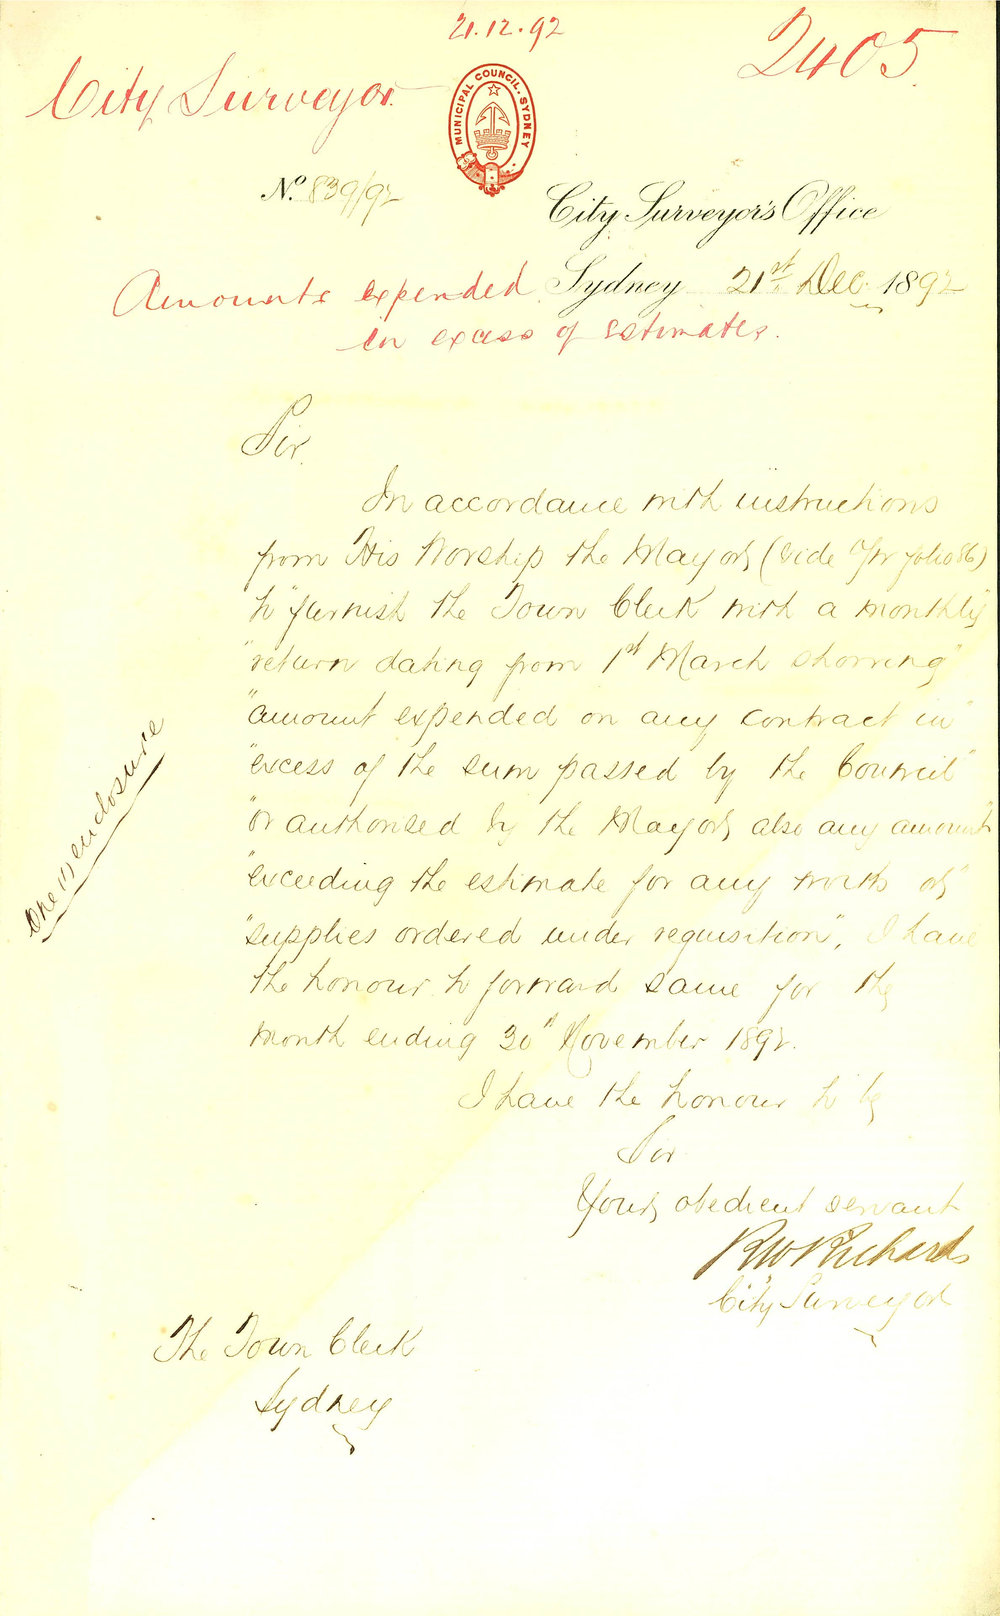 21.12.92
2405
City Surveyor.
MUNICIPAL COUNCIL. SYDNEY
No. 839/92
City Surveyor's Office
Sydney 21st Dec. 1892
Amounts expended
in excess of Estimates.
Sir
In accordance with instructions
from His Worship the Mayor, (vide folio 86)
to "furnish the Town Clerk with a monthly"
"return dating from 1st March showing"
"amount expended on any contract in"
"excess of the sum passed by the Council"
"or authorised by the Mayor, also any amount"
"exceeding the estimate for any works or"
"supplies ordered under requisition", I have
the honour to forward same for the
month ending 30th November 1892.
I have the honour to be
Sir
Your obedient servant
RW Richards
City Surveyor
One (1) enclosure
The Town Clerk
Sydney